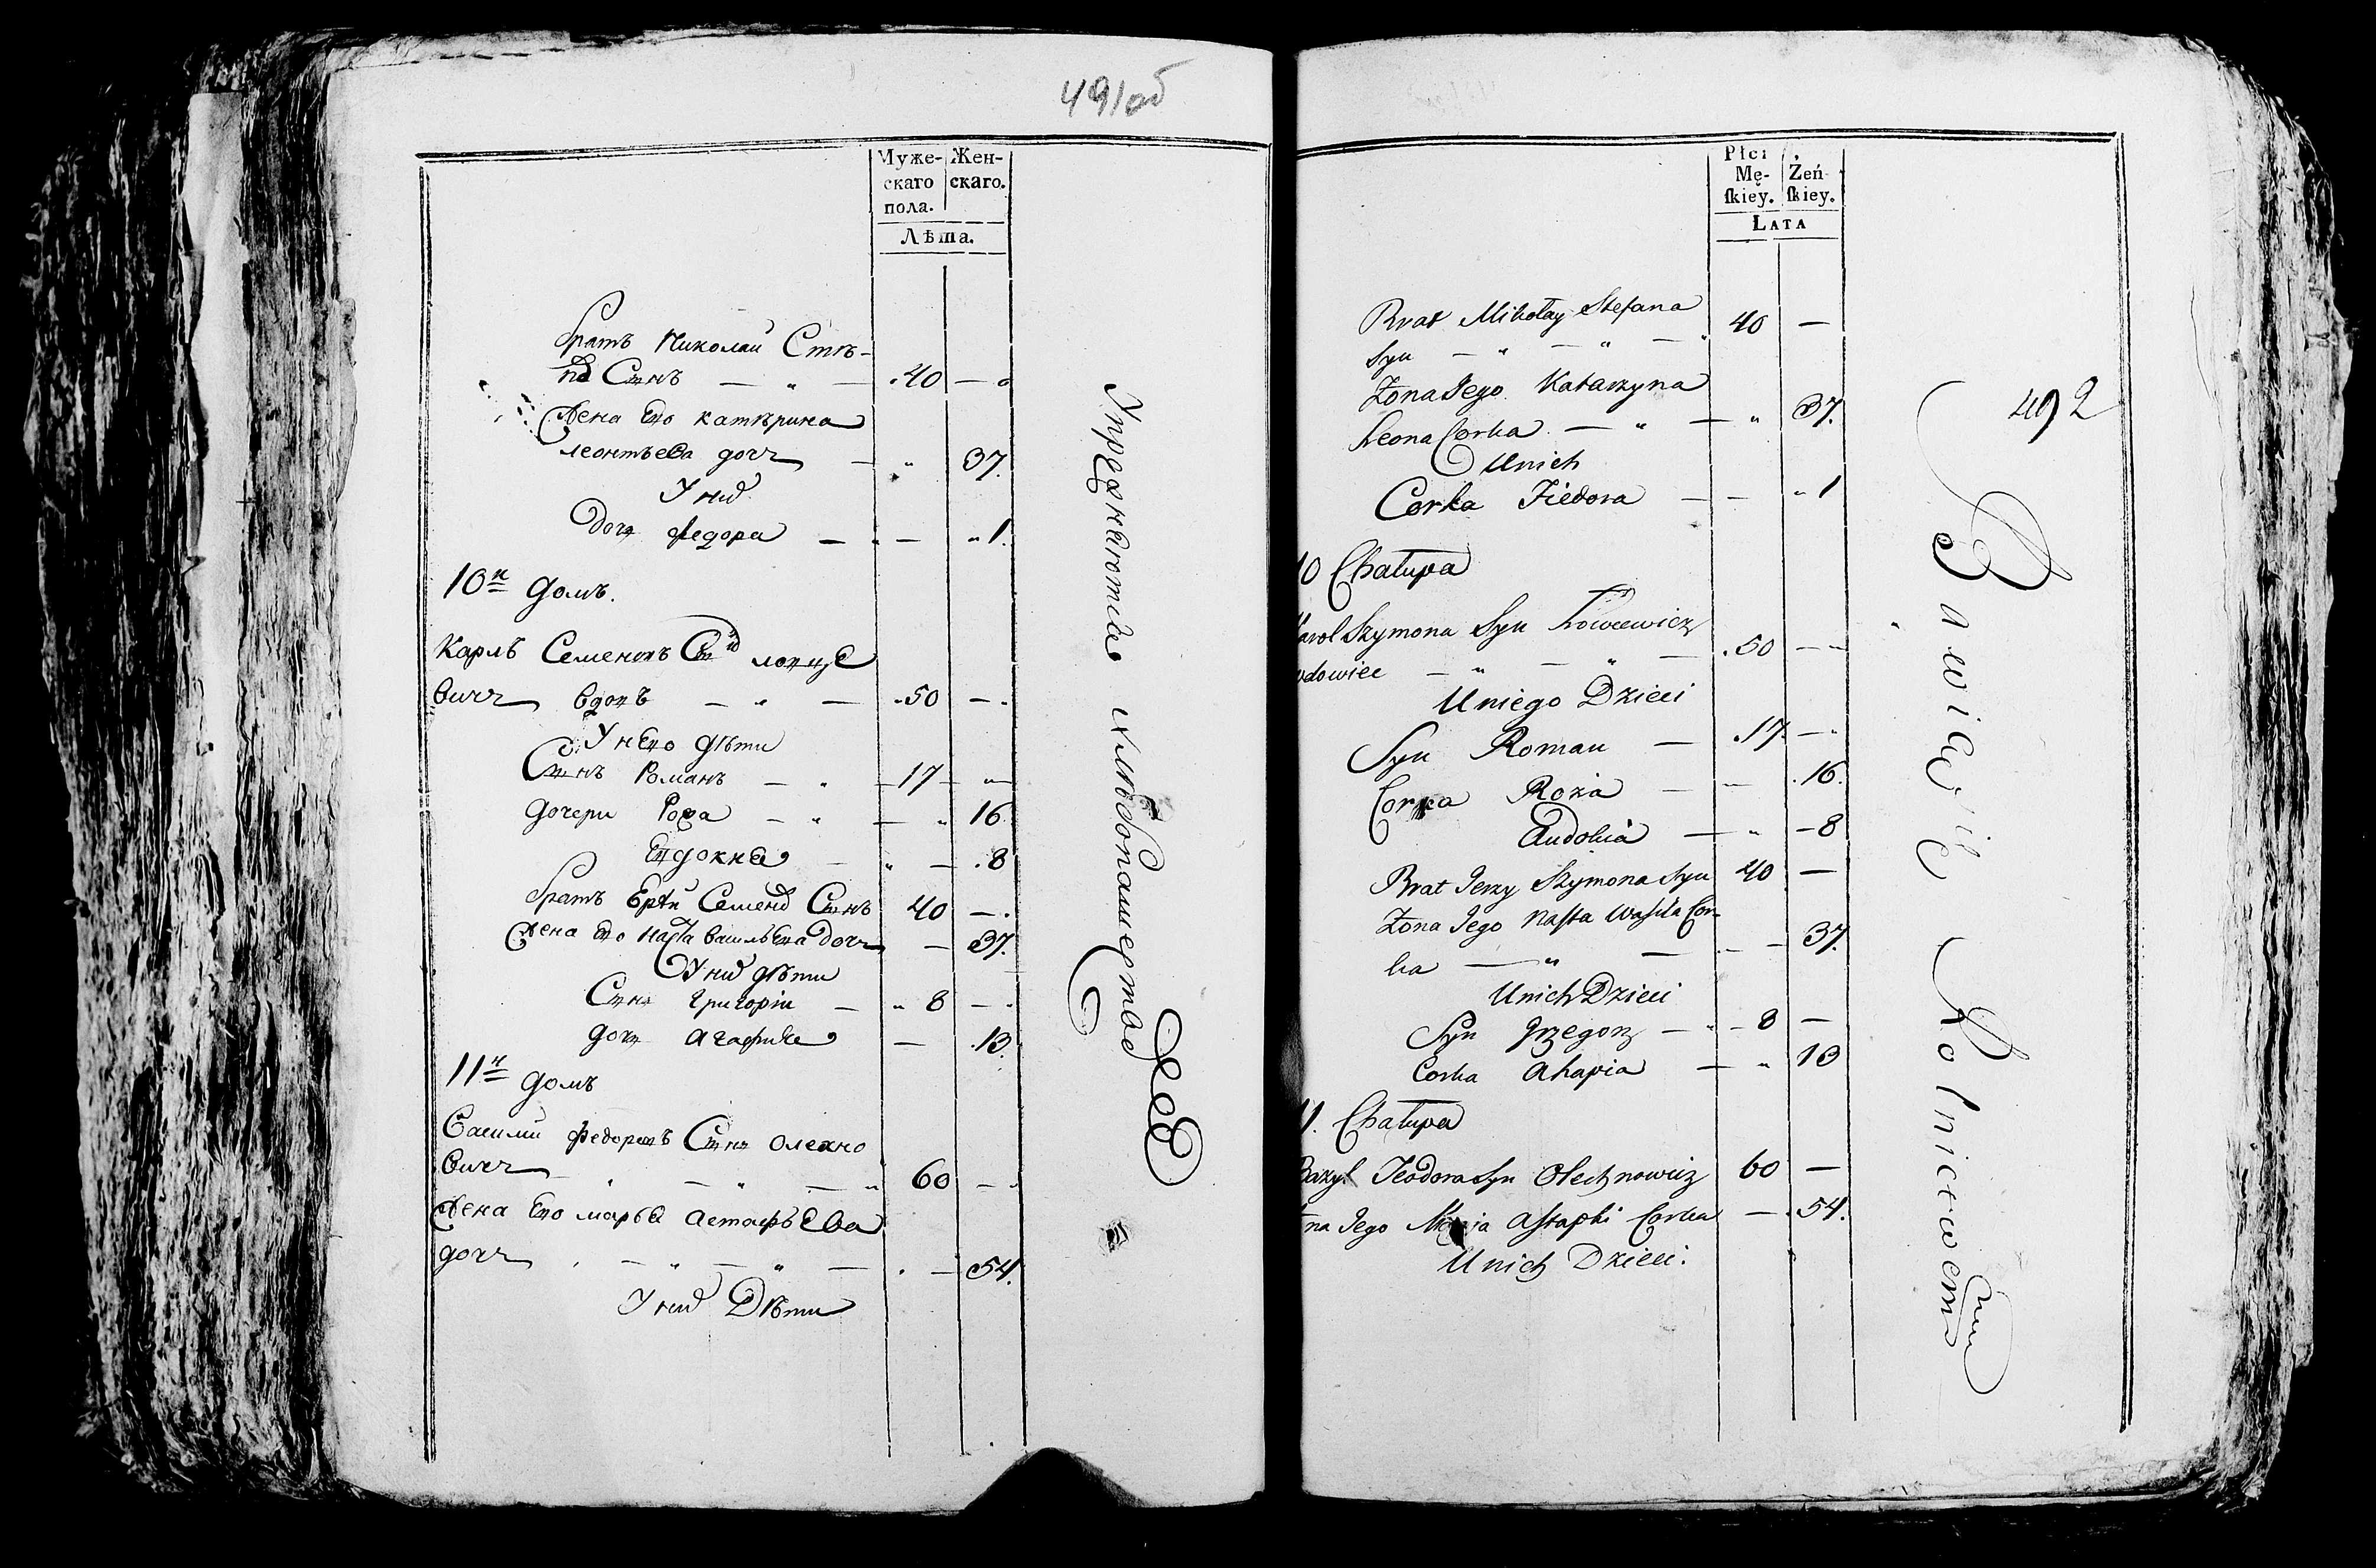 491об
Муже-
скаго
пола.
Жен-
скаго.
Лѣта.
братъ Николай Стѣ-
па Сынъ — „ — 40 —
Жена Его катѣрина
леонтьева дочь — „ 37.
У них
дочь федора — „ — „ 1.
10й домъ.
Карлъ Семеновъ Сын
вичь вдовъ — „ — 50 — „
У него дѣти
Сынъ Романъ — „ — 17 — „
дочери Роза — „ — „ 16.
Евдокия — „ — 8
братъ Ерій Семена Сынъ 40 — „
Жена Его Наста васильева дочь — 37.
У них дѣти
Сынъ Григорій — „ 8 — „
дочь Агафия — 13.
11й домъ
Василий федоровъ Сынъ Олехно
вичь — „ — „ — „ 60 — „
Жена Его марья Астафьева
дочь — „ — „ — „ — 54.
У них Дѣти
Упражняются хлѣбопашествомъ
Płci
Mę-
skiey.
Żeń-
skiey.
LATA
492
Brat Mikołay Stefana
Syn — „ — „ — „ 40 —
Żona Jego Katarzyna
Leona Corka — „ — „ 37.
U nich
Corka Fiedora — — „ 1
10 Chałupa
Karol Szymona Syn Łowcewicz
wdowiec — „ — „ — 50 — „
U niego Dzieci
Syn Roman — 17 — „
Corka Roza — „ 16.
Audokia — „ — 8
Brat Jerzy Szymona Syn 40 —
Żona Jego Nasta Wasila Cor-
ka — „ — — 37.
U nich Dzieci
Syn Grzegorz — „ — 8 —
Corka Ahapia — „ 13
11. Chałupa
Bazyl Teodora Syn Olechnowicz 60 —
Jego Astaphi Corka — 54.
U nich Dzieci.
Bawią się Rolnictwem